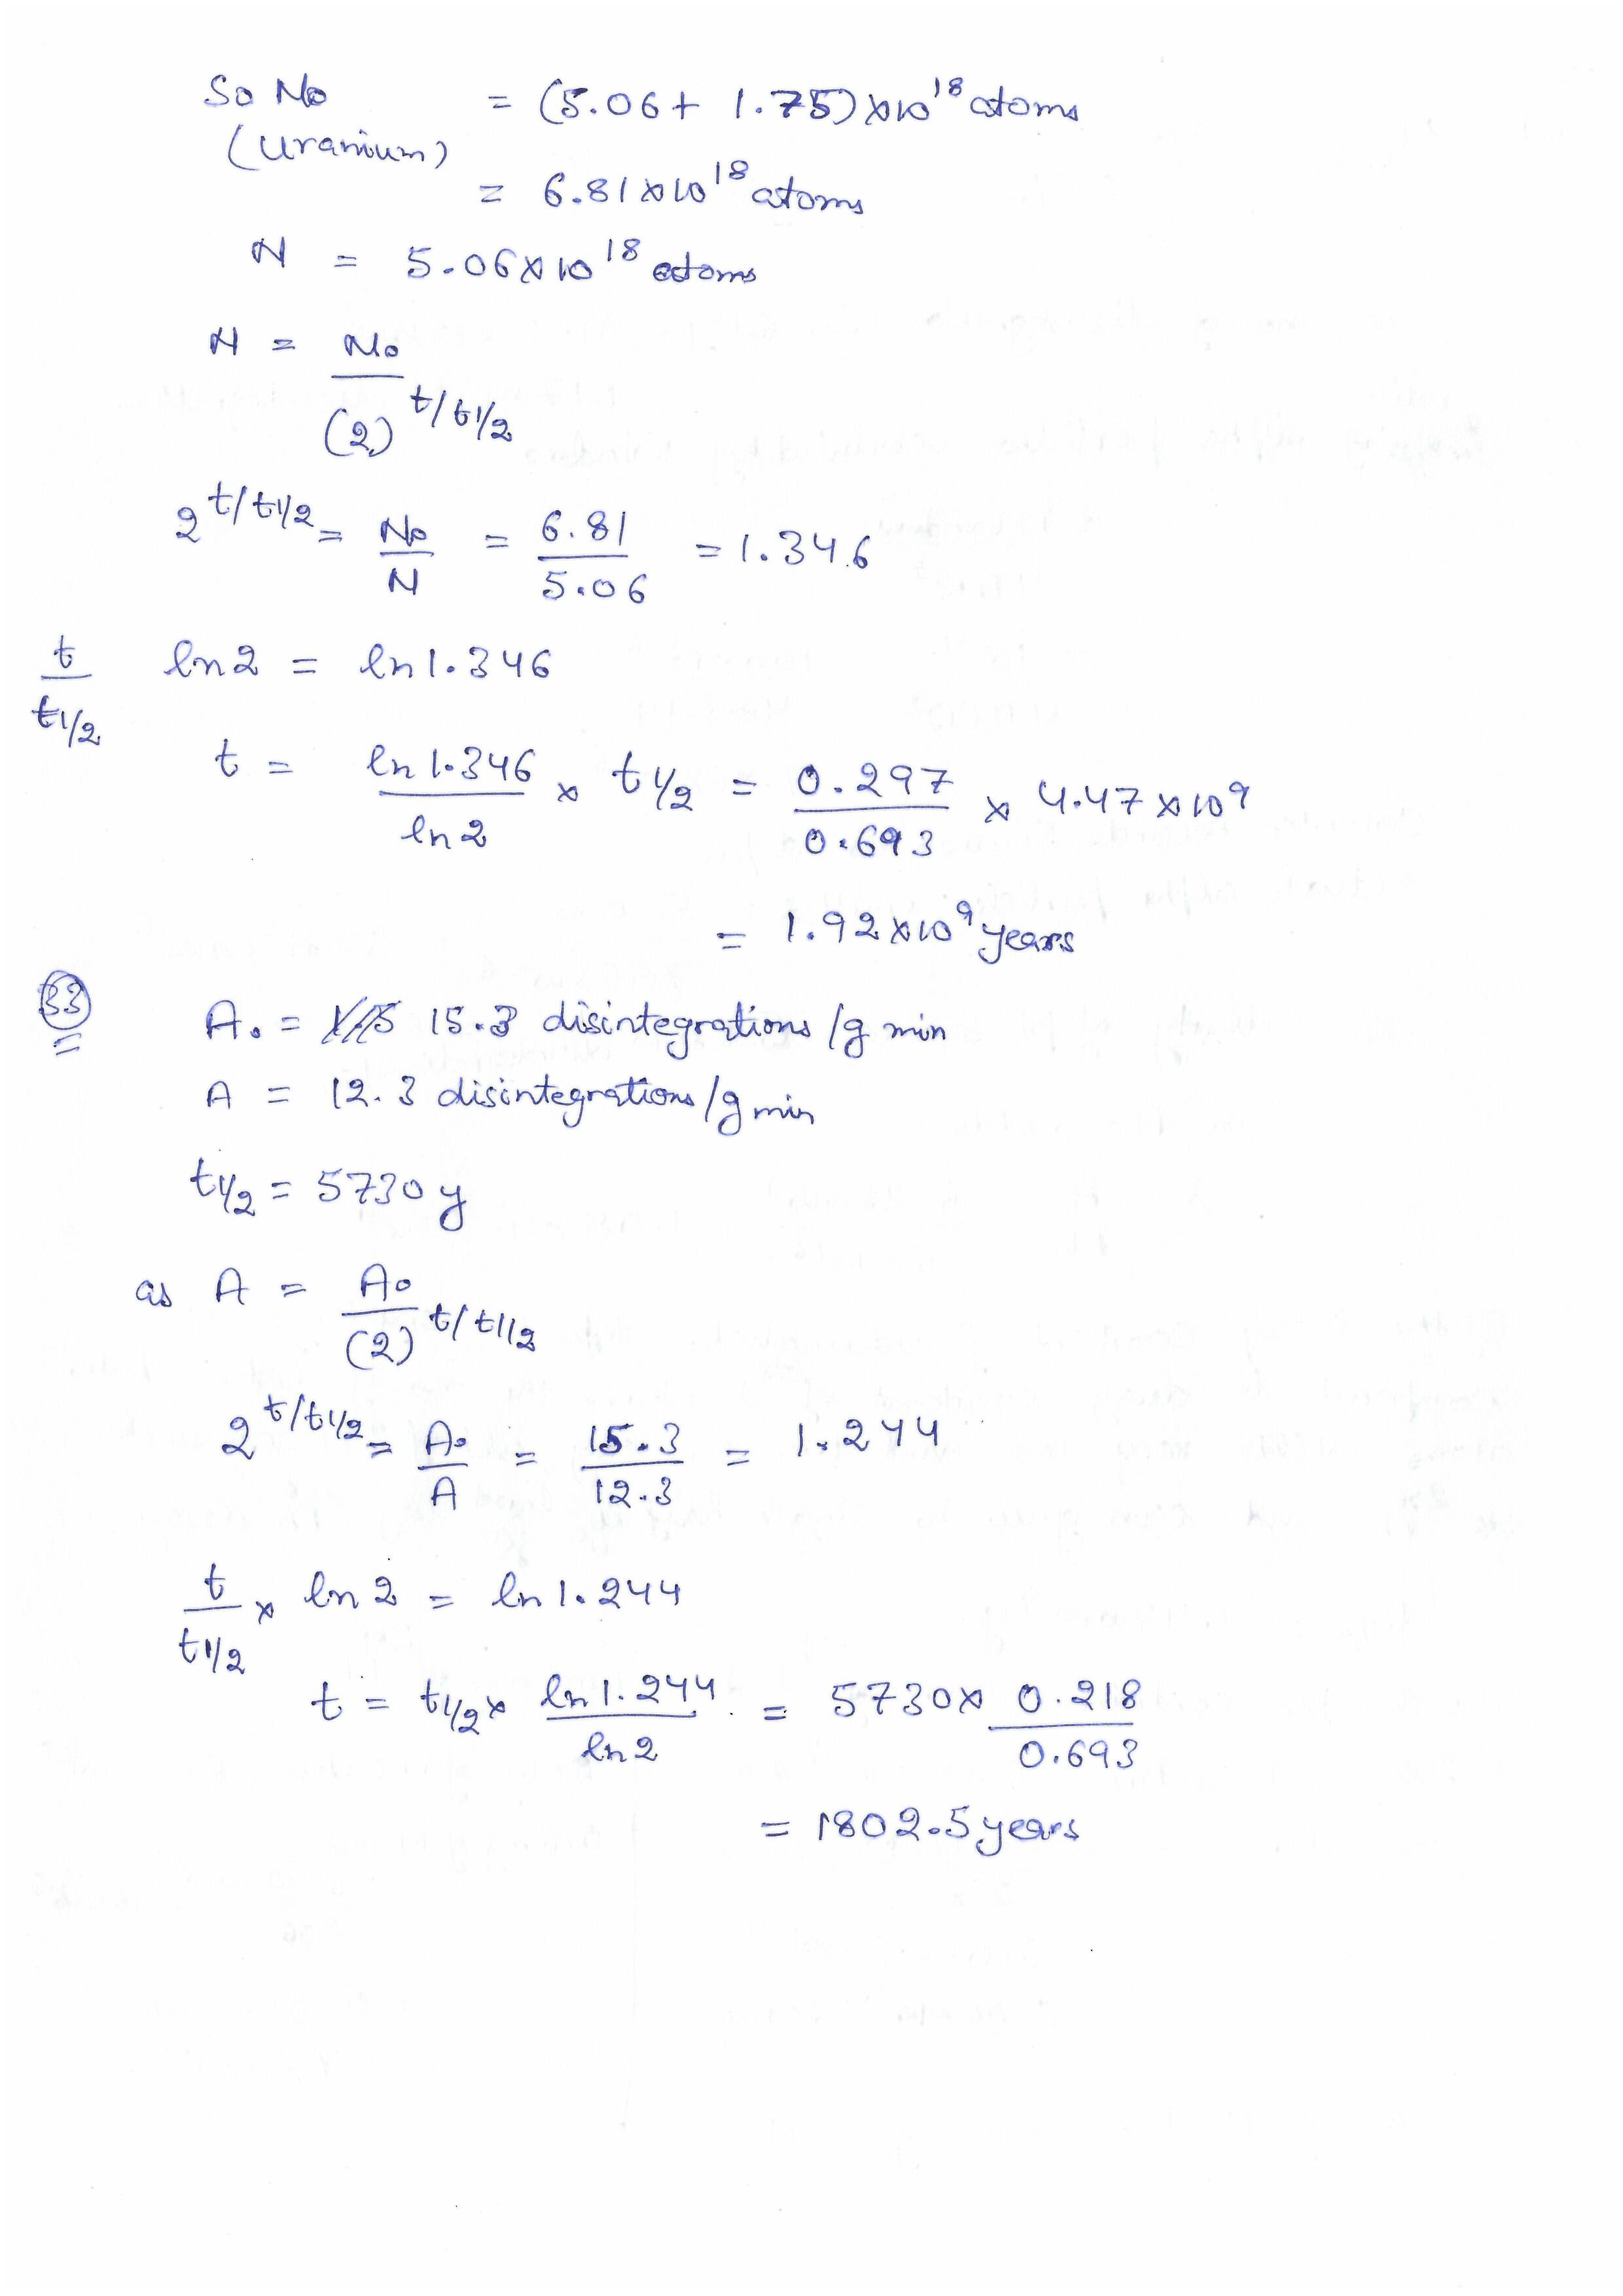 So No = (5.06 + 1.75) x 10^18 atoms
(Uranium)
= 6.81 x 10^18 atoms
N = 5.06 x 10^18 atoms
N = No / (2)^t/t1/2
2^t/t1/2 = No / N = 6.81 / 5.06 = 1.346
t / t1/2 ln 2 = ln 1.346
t = ln 1.346 / ln 2 x t1/2 = 0.297 / 0.693 x 4.47 x 10^9
= 1.92 x 10^9 years
33 Ao = 15.3 disintegrations /g min
A = 12.3 disintegrations /g min
t1/2 = 5730 y
as A = Ao / (2)^t/t1/2
2^t/t1/2 = Ao / A = 15.3 / 12.3 = 1.244
t / t1/2 x ln 2 = ln 1.244
t = t1/2 x ln 1.244 / ln 2 = 5730 x 0.218 / 0.693
= 1802.5 years